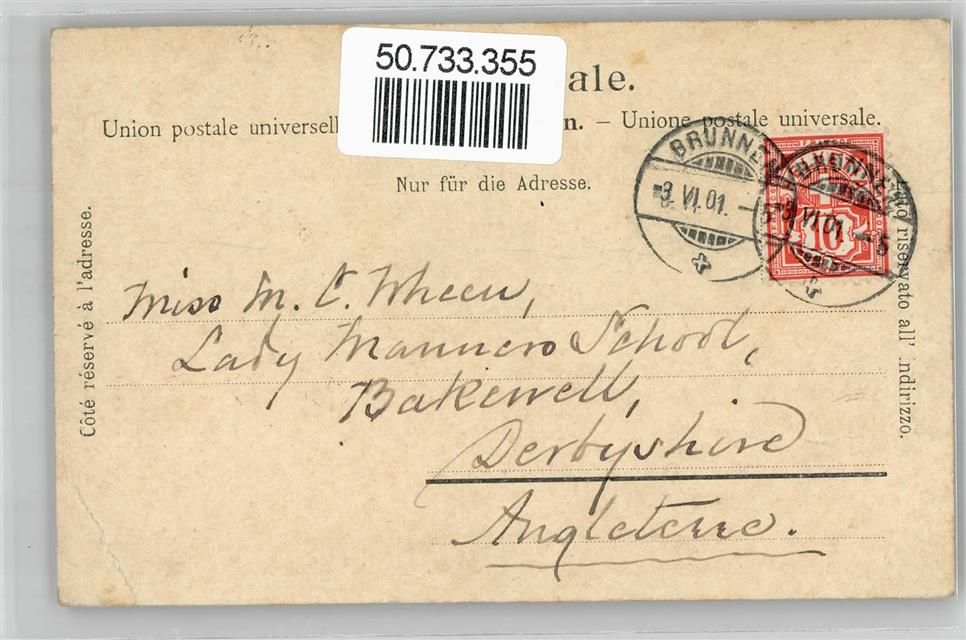 50.733.355
ale.
Union postale universell n. – Unione postale universale.
Nur für die Adresse.
Côté réservé à l'adresse.
Lato riservato all' indirizzo.
BRUNNEN
3.VI.01.
BRUNNEN
3.VI.01.-5
10
Miss M. C. Wheen,
Lady Manners School,
Bakewell,
Derbyshire
Angleterre.